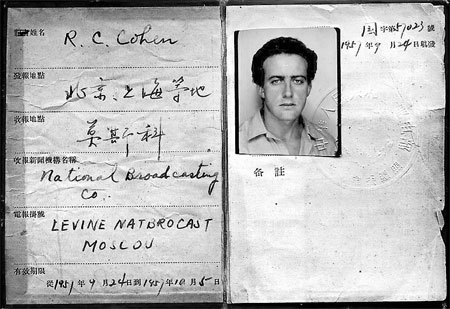 姓名
R. C. Cohen
發報地點
北京、上海等地
收報地點
莫斯科
收報新聞機構名稱
National Broadcasting
Co.
電報掛號
LEVINE NATBROCAST
MOSCOW
有效期限
從1957年9月24日到1957年10月5日
字第57023號
1957年9月24日
备註